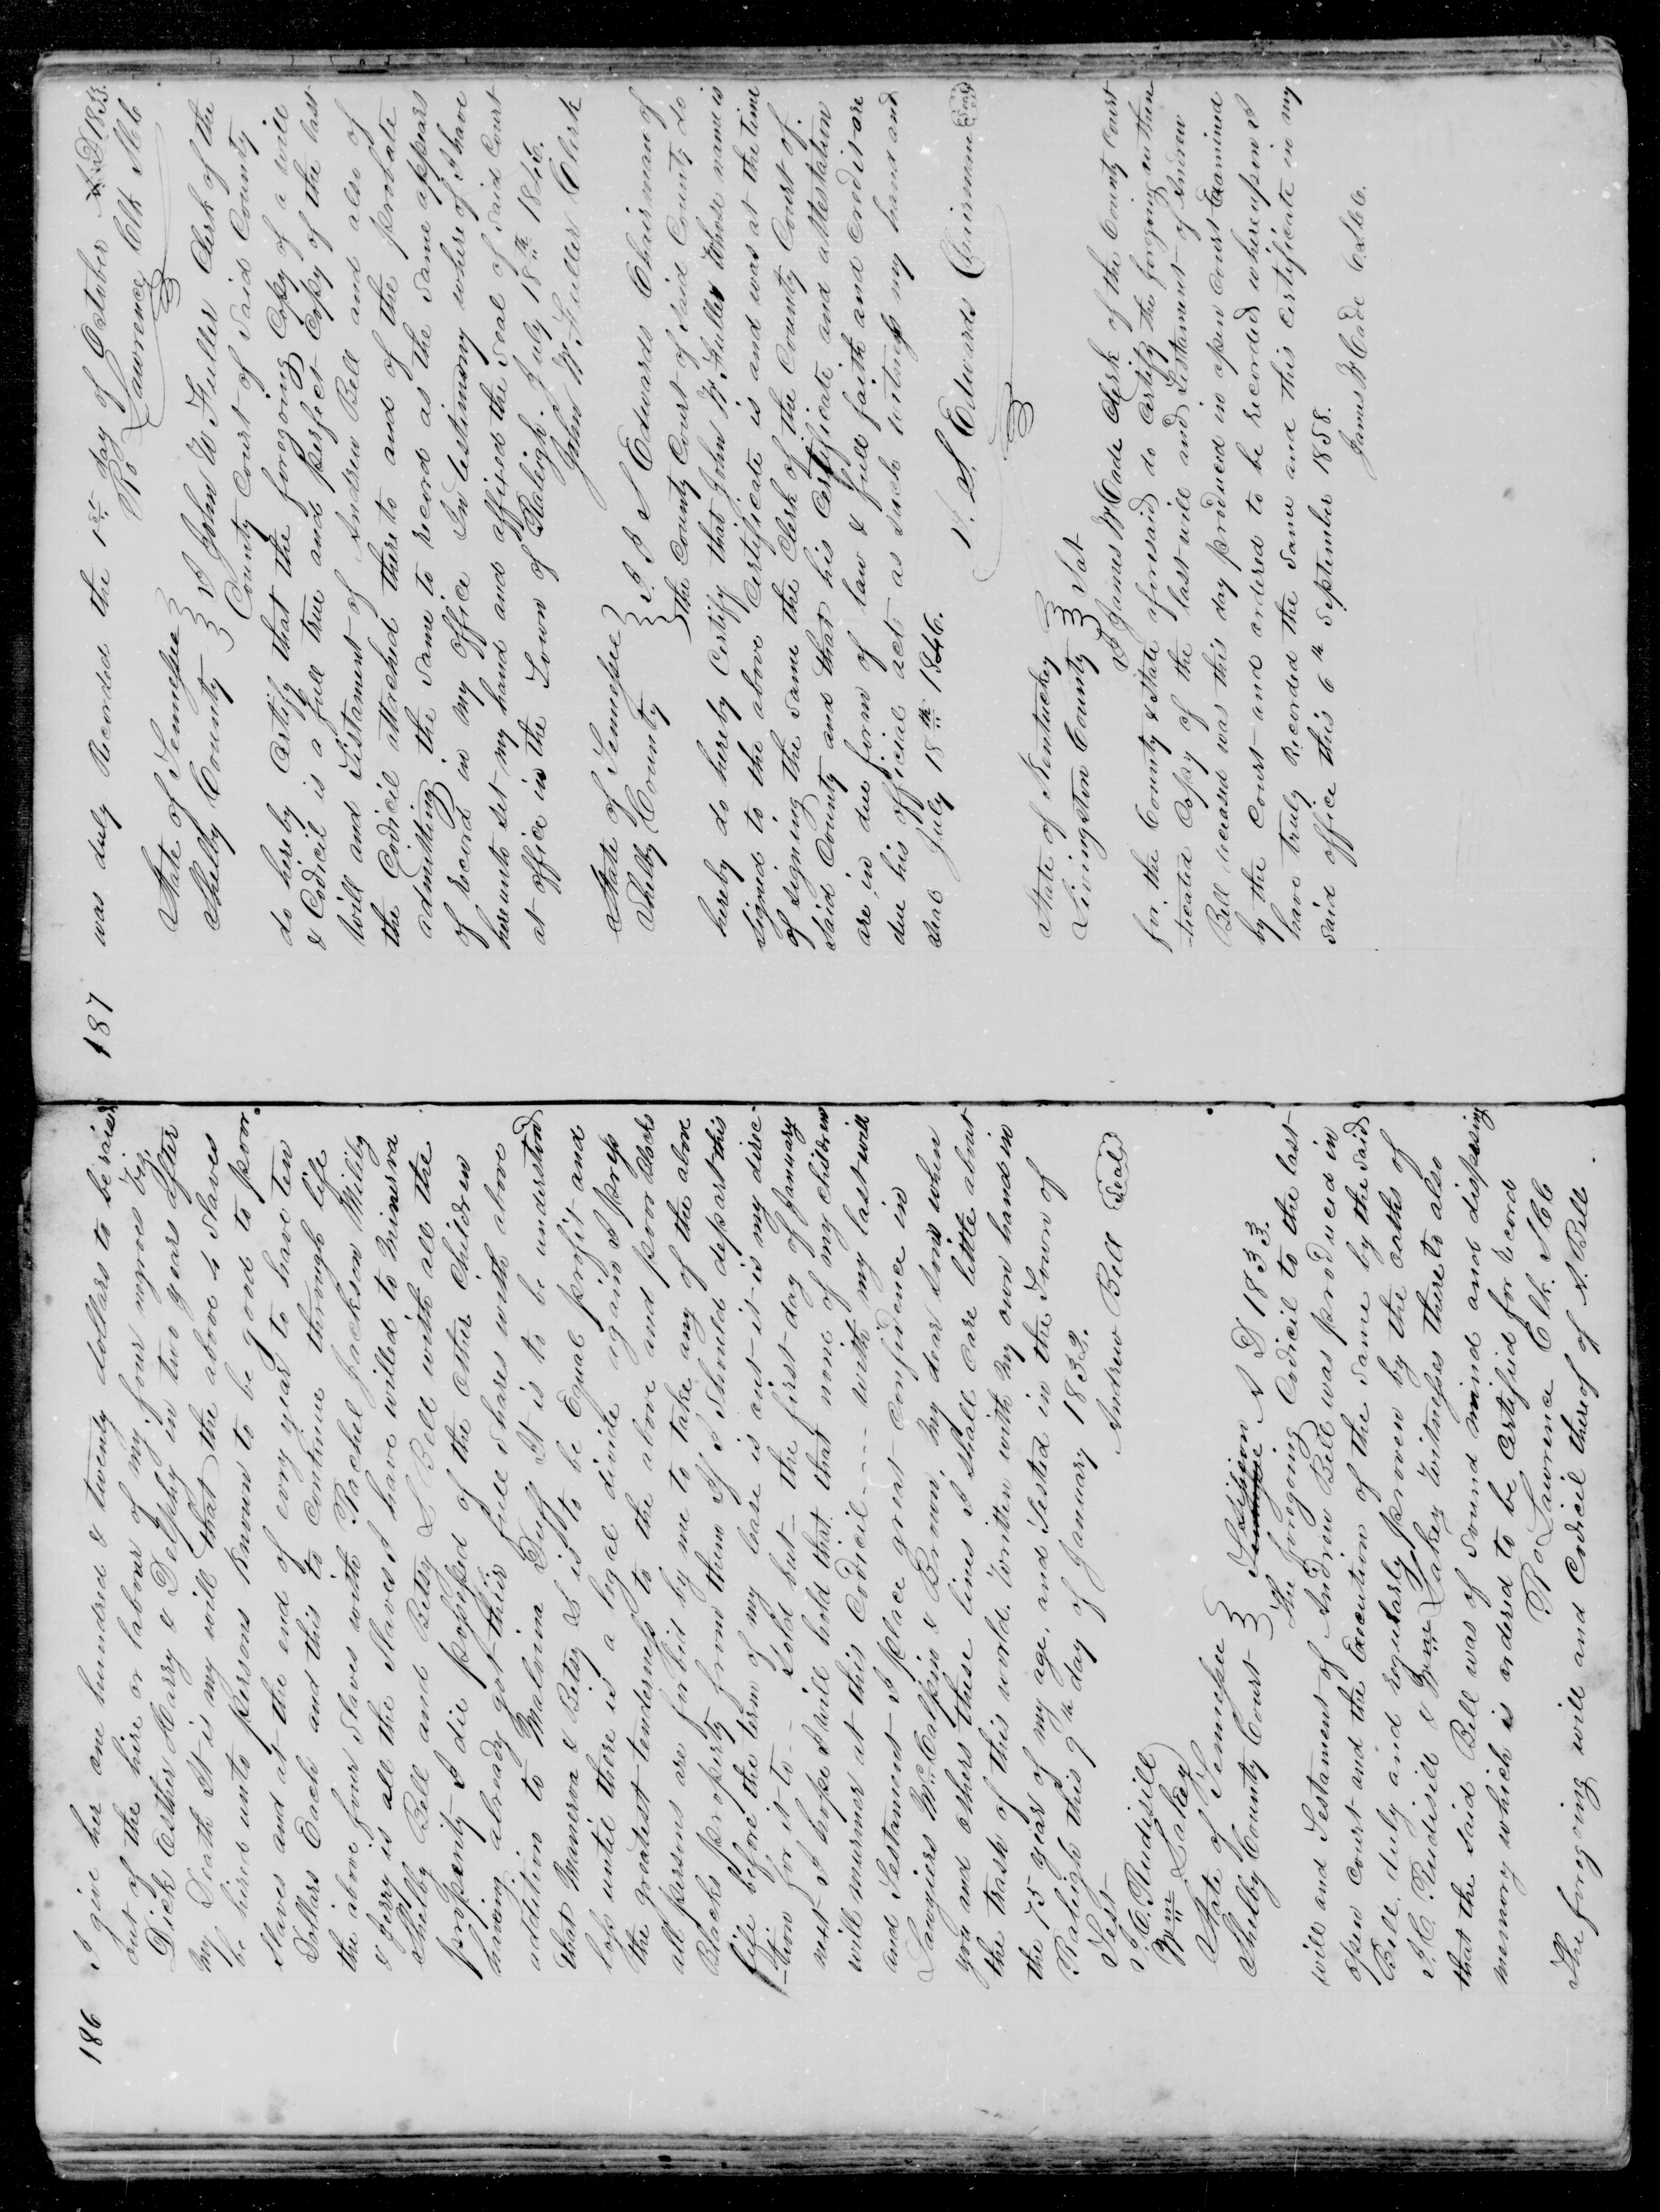 186
I give her one hundred & twenty dollars to be raised
out of the hire or labour of my four negroes viz,
Dick Esther Harry & Delphy in two years after
my Death It is my will that the above 4 Slaves
be hired unto persons known to be good to poor
Slaves and at the end of every year to have ten
Dollars Each and this to continue through life
the above four Slaves with Rachel Jackson Mility
& Jerry is all the Slaves I have willed to Minerva
Shelby Bell and Betsy L Bell with all the
property I die possessed of the other children
having already got their full shares with above
addition to Malvina Duff It is to be understood
that Manerva & Betsy L is to be Equal profit and
loss until there is a legal divide again I press
the greatest tenderness to the above and poor Blacks
all persons are forbid by me to take any of the above
Blacks property from them If I Should depart this
life before the term of my lease is out it is my direc
-tion for it to - Sold but - the first day of January
next I hope I will hold that that none of my children
will murmer at this Codicil - - - with my last will
and Testament I place great confidence in
Lawyiers McCalpin & Brown, My dear Sons when
you and others these lines I shall care little about
the trash of this world. Written with my own hand in
the 75 years of my age, and Tested in the Town of
Raleigh this 9th day of January 1833.
Test Andrew Bell (Seal)
J. C. Rudisill
Wm Lakey
State of Tennessee
Shelby County Court } Session A D 1833.
The foregoing Codicil to the last
will and Testament of Andrew Bell was produced in
open Court and the Execution of the same by the said
Bell duly and regularly proven by the oaths of
J. C. Rudisill & Wm Lakey Witnesses thereto also
that the said Bell was of sound mind and dispossing
memory which is ordered to be Certified for record
Ro Lawrence Clk. SCC
The foregoing will and Codicil thereof of A. Bell
187
was duly Recorded the 1st day of October A D 1833.
Ro Lawrence Clk SCC
State of Tennessee
Shelby County } I John W Fuller Clerk of the
County Court of Said County
do hereby Certify that the foregoing Copy of a will
& Codicil is a full true and perfect Copy of the last
Will and Testament of Andrew Bell and also of
the Codicil attached thereto and of the probate
admitting the same to record as the same appears
of record in my office In testimony whereof I have
hereunto set my hand and affixed the seal of said Court
at office in the Town of Raleigh. July 18th 1846.
John W. Fuller Clerk
State of Tennessee
Shelby County } I. I S Edwards Chairman of
the County Court of Said County do
hereby do hereby Certify that John W. Fuller whose name is
signed to the above Certificate is and was at the time
of signing the same the Clerk of the County Court of.
Said County and that his Certificate and attestation
are in due form of law & full faith and credit are
due his official acts as such witness my hand and
seal July 18th 1846.
S. Edwards Chairman (Seal)
State of Kentuckey
Livingston County } Sct
I James W Cade Clerk of the County Court
for the County & State aforesaid do certify the foregoing authen
-ticated Copy of the last will and Testament of Andrew
Bell deceased was this day produced in open Court Examined
by the Court and ordered to be recorded whereupon I
have truly Recorded the same and this Certificate in my
said office this 6th September 1858.
James W Cade C.L.C.C.